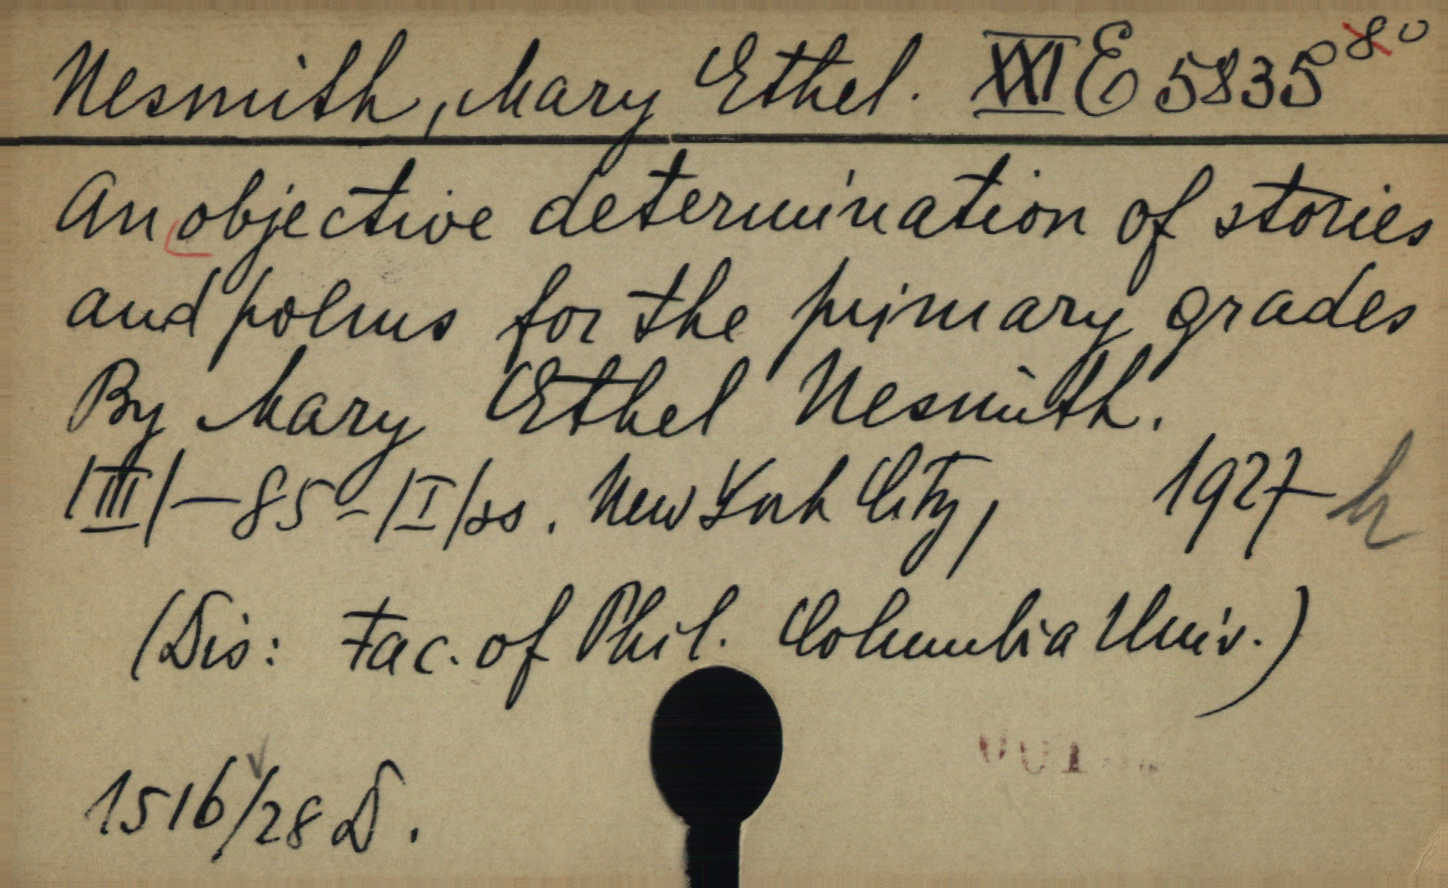 Nesmith, Mary Ethel. XXI E 5835 8°
An objective determination of stories
and poems for the primary grades
By Mary Ethel Nesmith.
/III/-85-/I/ss. New York City, 1927
(Dis: Fac. of Phil. Columbia Univ.)
1516/28 D.